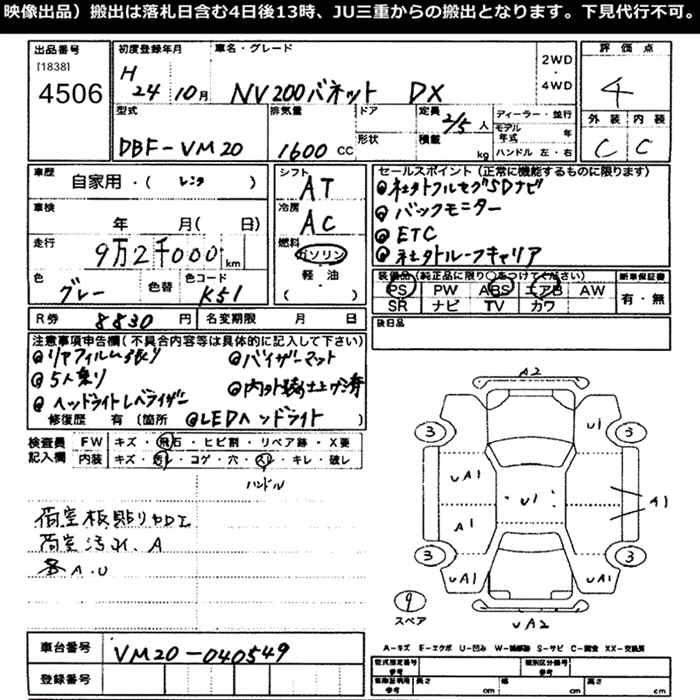 映像出品）搬出は落札日含む4日後13時、JU三重からの搬出となります。下見代行不可。
出品番号
[1838]
4506
初度登録年月
H
24 10月
車名・グレード
NV200バネット DX
2WD
・
4WD
評価点
4
型式
DBF-VM20
排気量
1600 CC
ドア
形状
定員
2/5人
積載
kg
ディーラー・並行
モデル年式 年
ハンドル 左・右
外装 内装
C C
車歴
自家用・( レンタ )
車検
年 月( 日)
走行
9万2千000 km
色
グレー
色替
色コード
K51
シフト
AT
冷房
AC
燃料
ガソリン
・
軽・油
( )
セールスポイント（正常に機能するものに限ります）
社外フルセグSDナビ
バックモニター
ETC
社外ルーフキャリア
装備品（純正品に限り○をつけてください）
PS PW ABS エアB AW
SR ナビ TV カワ
新車保証書
有・無
R券 8830円
名変期限 月 日
後日品
注意事項申告欄(不具合内容等は具体的に記入して下さい)
リアフィルム張り
バイザーマット
5人乗り
内外装仕上ゲ済
ヘッドライトレベライザー
修復歴 有〔箇所
LEDヘッドライト 〕
検査員記入欄
FW キズ・飛石・ヒビ割・リペア跡・X要
内装 キズ・汚レ・コゲ・穴・スレ・キレ・破レ
ハンドル
荷室板貼り加工
荷室汚れ、A
各A.U
A2
3 U1 3
UA1 U1 A1
A1
3 3
UA1 UA1
9
スペア
UA2
A-キズ E-エクボ U-凹み W-補修跡 S-サビ C-腐食 XX-交換済
車台番号
VM20-040549
登録番号
型式指定番号
参考
類別区分番号
参考
長さ cm 幅 cm 高さ cm